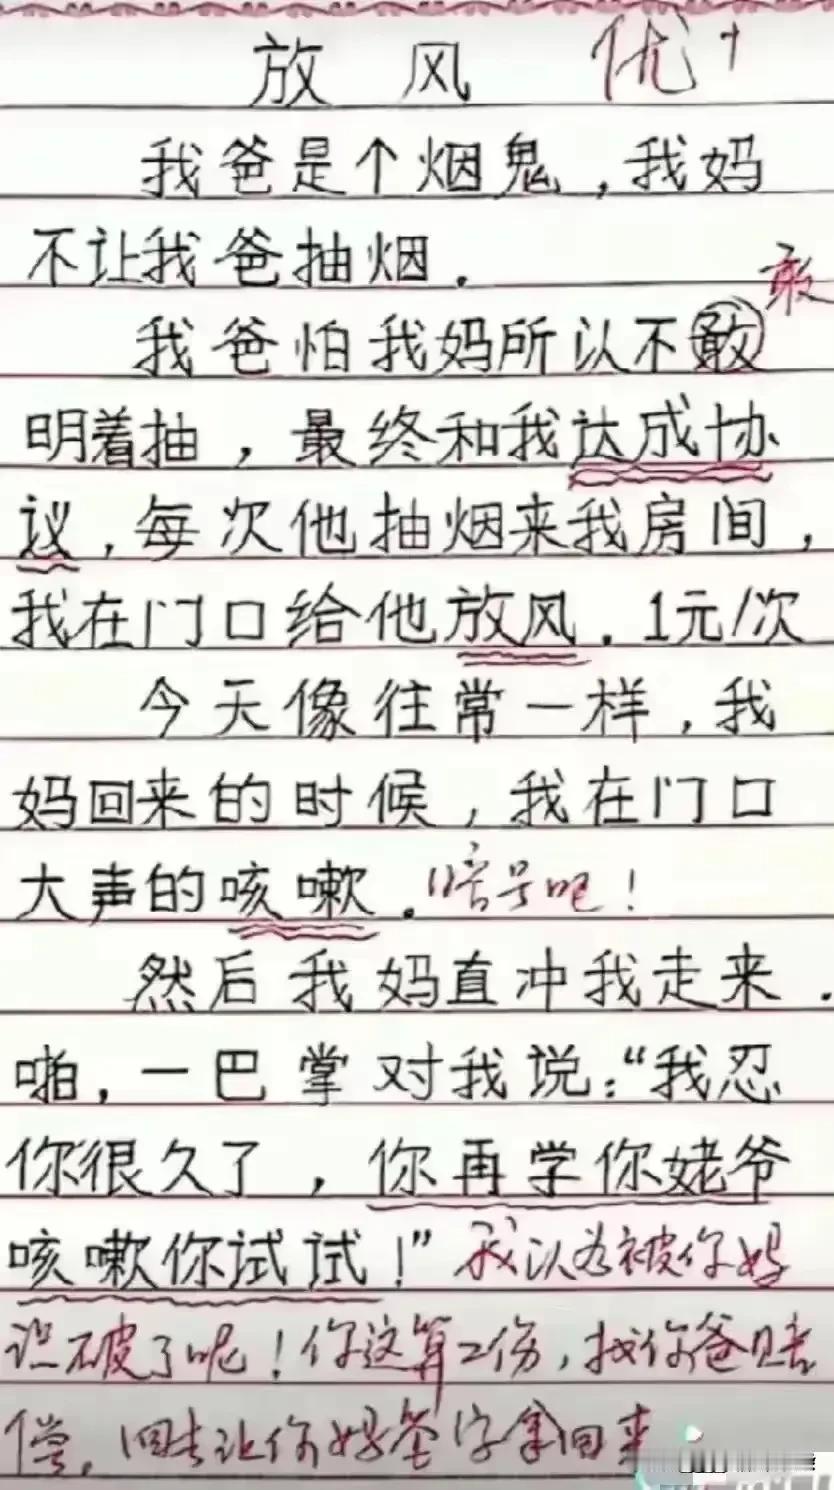 放风 优+
我爸是个烟鬼，我妈
不让我爸抽烟．
敢
我爸怕我妈所以不敢
明着抽，最终和我达成协
议，每次他抽烟来我房间，
我在门口给他放风．1元/次
今天像往常一样，我
妈回来的时候，我在门口
大声的咳嗽．暗号吧！
然后我妈直冲我走来．
啪，一巴掌对我说：“我忍
你很久了，你再学你姥爷
咳嗽你试试！”我以为被你妈
识破了呢！你这算工伤，找你爸赔
偿，回去让你妈签字拿回来